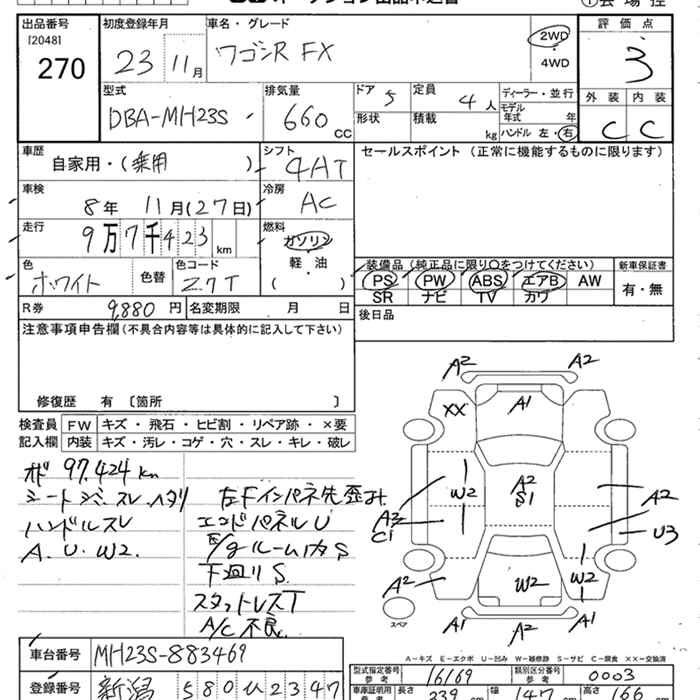 出品番号 [2048] 270
初度登録年月 23 11月
車名・グレード ワゴンR FX
2WD
4WD
評価点 3
外装 内装
C C
型式 DBA-MH23S
排気量 660 cc
ドア 5
定員 4 人
形状
積載 kg
ディーラー・並行
モデル年式 年
ハンドル 左・右
車歴 自家用・(乗用)
シフト 4AT
セールスポイント (正常に機能するものに限ります)
車検 8年 11月(27日)
冷房 AC
走行 9万7千423km
燃料 ガソリン
軽・油
( )
色 ホワイト 色替
色コード Z7T
装備品 (純正品に限り〇をつけてください)
新車保証書
PS PW ABS エアB AW
SR ナビ TV カワ
有・無
R券 9,880 円
名変期限 月 日
後日品
注意事項申告欄(不具合内容等は具体的に記入して下さい)
修復歴 有〔箇所 〕
検査員記入欄
FW キズ・飛石・ヒビ割・リペア跡・×要
内装 キズ・汚レ・コゲ・穴・スレ・キレ・破レ
オド 97,424 km
シートシミ.スレ.ヘタリ
ハンドルスレ
A.U.W2.
左Fインパネ先歪み.
エンドパネルU
下廻りS.
スタットレスT
A/C不良.
A2 A2
XX A1
W2 A2 S1
A2 C1
A2 U3
A2 W2 W2
A1 A2 A1
スペア
A-キズ E-エクボ U-凹み W-補修跡 S-サビ C-腐食 ××-交換済
車台番号 MH23S-883469
型式指定番号 参考 16169
類別区分番号 参考 0003
登録番号 新潟 580 ひ 2347
車庫証明用 参考 長さ 339 cm 幅 147 cm 高さ 166 cm